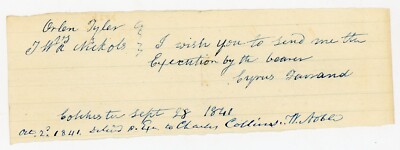 Orlen Tyler
vs
T W R Nichols
I wish you to send me the
Execution by the bearer
Cyrus Farrand
Colchester Sept 28 1841
Oct 2d 1841 to Charles Collins. W. Noble